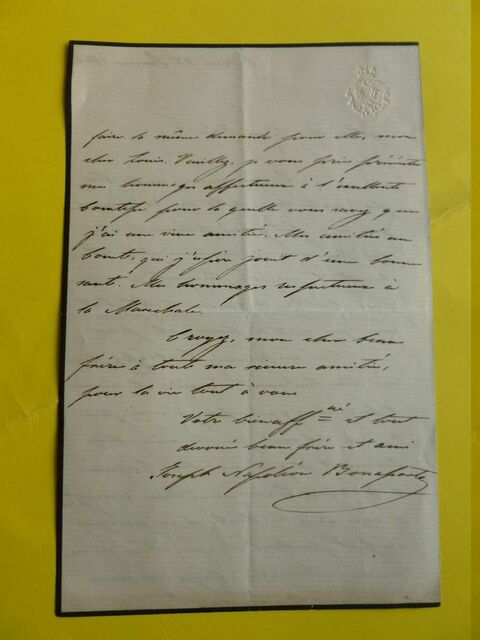 faire la même demande pour elle, mon
cher Louis. Veuillez, je vous prie présenter
mes hommages affectueux à l'excellente
Comtesse pour la quelle vous savez que
j'ai une vive amitié. Mes amitiés au
Comte, qui j'espère jouit d'une bonne
santé. Mes hommages respectueux à
la Marechale.
Croyez, mon cher beau
frère à toute ma sincère amitié,
pour la vie tout à vous
Votre bienaff né et tout
devoué beau frère et ami
Joseph Napoléon Bonaparte